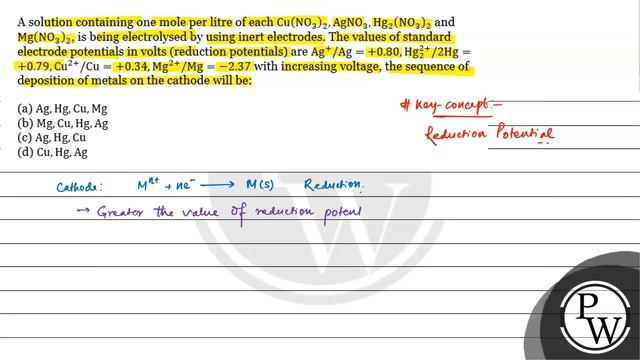 A solution containing one mole per litre of each Cu(NO₃)₂, AgNO₃, Hg₂(NO₃)₂ and
Mg(NO₃)₂, is being electrolysed by using inert electrodes. The values of standard
electrode potentials in volts (reduction potentials) are Ag⁺/Ag = +0.80, Hg₂²⁺/2Hg =
+0.79, Cu²⁺/Cu = +0.34, Mg²⁺/Mg = −2.37 with increasing voltage, the sequence of
deposition of metals on the cathode will be:
(a) Ag, Hg, Cu, Mg
(b) Mg, Cu, Hg, Ag
(c) Ag, Hg, Cu
(d) Cu, Hg, Ag
# Key-concept:-
Reduction Potential
Cathode: Mⁿ⁺ + ne⁻ ⟶ M(s) Reduction.
→ Greater the value of reduction potent
P
W